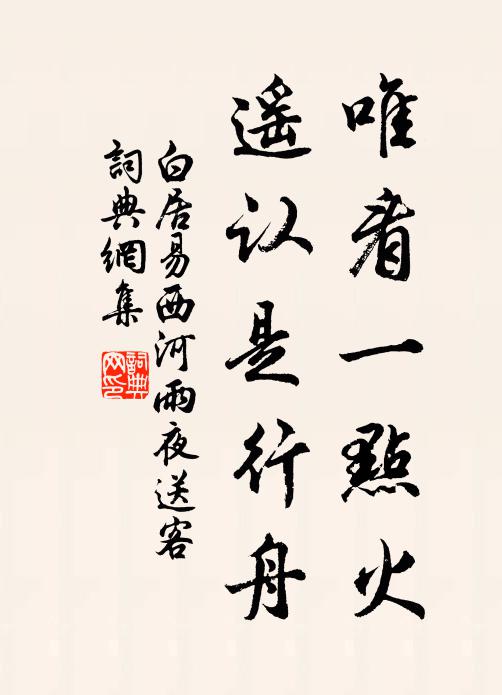 唯看一點火
遙认是行舟
白居易西河雨夜送客
詞典網集
詞典
网印